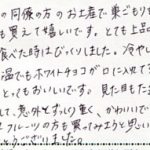 の同僚の方のお土産で巣ごもり
も買えて嬉しいです。とても上品
食べた時はびっくりました。冷やし
温でもホワイトチョコが口に入れて
とってもおいしいです。見た目も
して、意外とずっしり重く、かわいいで
フルーツの方も買ってみようと思い
うございました。